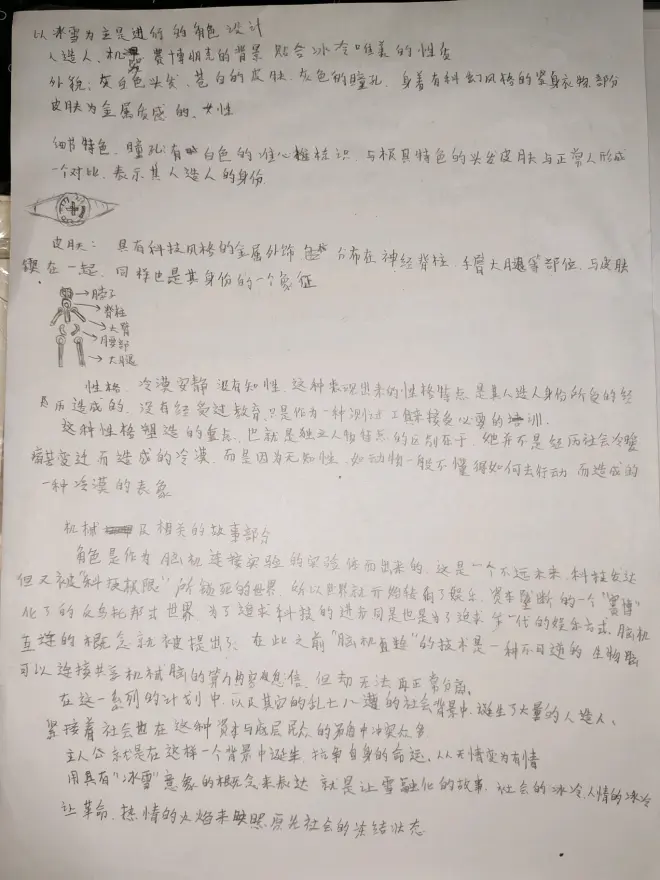 以冰雪为主题进行的角色设计
人造人、机器 赛博朋克的背景 贴合冰冷唯美的性质
外貌：灰白色头发、苍白的皮肤、灰色的瞳孔、身着有科幻风格的紧身衣物、部分
皮肤为金属质感的、女性
细节特色、瞳孔：有白色的准心标识、与极具特色的头发皮肤与正常人形成
一个对比、表示其人造人的身份、
皮肤：具有科技风格的金属外饰 分布在神经脊柱、手臂大腿等部位、与皮肤
锲在一起、同样也是其身份的一个象征
脖子
脊柱
大臂
腰部
大腿
性格、冷漠安静 没有知性、这种表现出来的性格特点、是其人造人身份所负的经
历造成的、没有经受过教育、只是作为一种测试工具来接受必要的培训、
这种性格塑造的重点、也就是独立人物特点的区别在于、她并不是经历社会冷暖
变迁而造成的冷漠、而是因为无知性、如动物一般不懂得如何去行动 而造成的
一种冷漠的表象
机械 及相关的故事部分
角色是作为脑机连接实验的实验体而出来的、这是一个不远未来、科技发达
但又被“科技权限”所锁死的世界、所以世界就开始倾向了娱乐、资本垄断的一个“赛博”
化了的反乌托邦式世界、为了追求科技的进步同是也是为了追求第一代的娱乐方式、脑机
互连的概念就被提出了、在此之前“脑机直连”的技术是一种不可逆的、生物脑
可以连接共享机械脑的算力与信息、但却无法再正常分离、
在这一系列的计划中、以及其它的乱七八遭的社会背景中、诞生了大量的人造人、
紧接着社会也在这种资本与底层民众的矛盾中冲突
主人公就是在这样一个背景中诞生、抗争自身的命运、从无情变为有情
用具有“冰雪”意象的概念来表达 就是让雪融化的故事、社会的冰冷、人情的冰冷
让革命、热情的火焰来映照原先社会的冻结状态